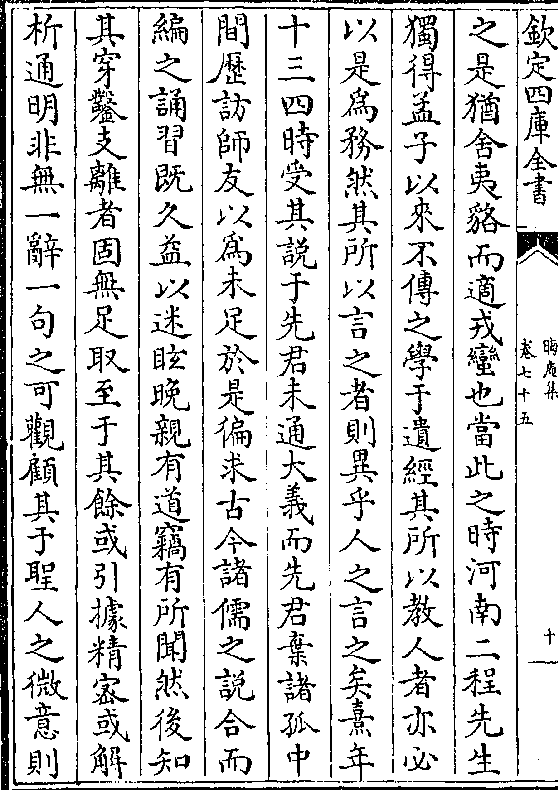 欽定四庫全書
晦庵集
卷七十五
十
之是猶舍夷貉而適戎蠻也當此之時河南二程先生
獨得孟子以來不傳之學于遺經其所以教人者亦必
以是為務然其所以言之者則異乎人之言之矣熹年
十三四時受其説于先君未通大義而先君棄諸孤中
間歴訪師友以為未足於是徧求古今諸儒之説合而
編之誦習既久益以迷眩晩親有道竊有所聞然後知
其穿鑿支離者固無足取至于其餘或引據精宻或解
析通明非無一辭一句之可觀顧其于聖人之微意則